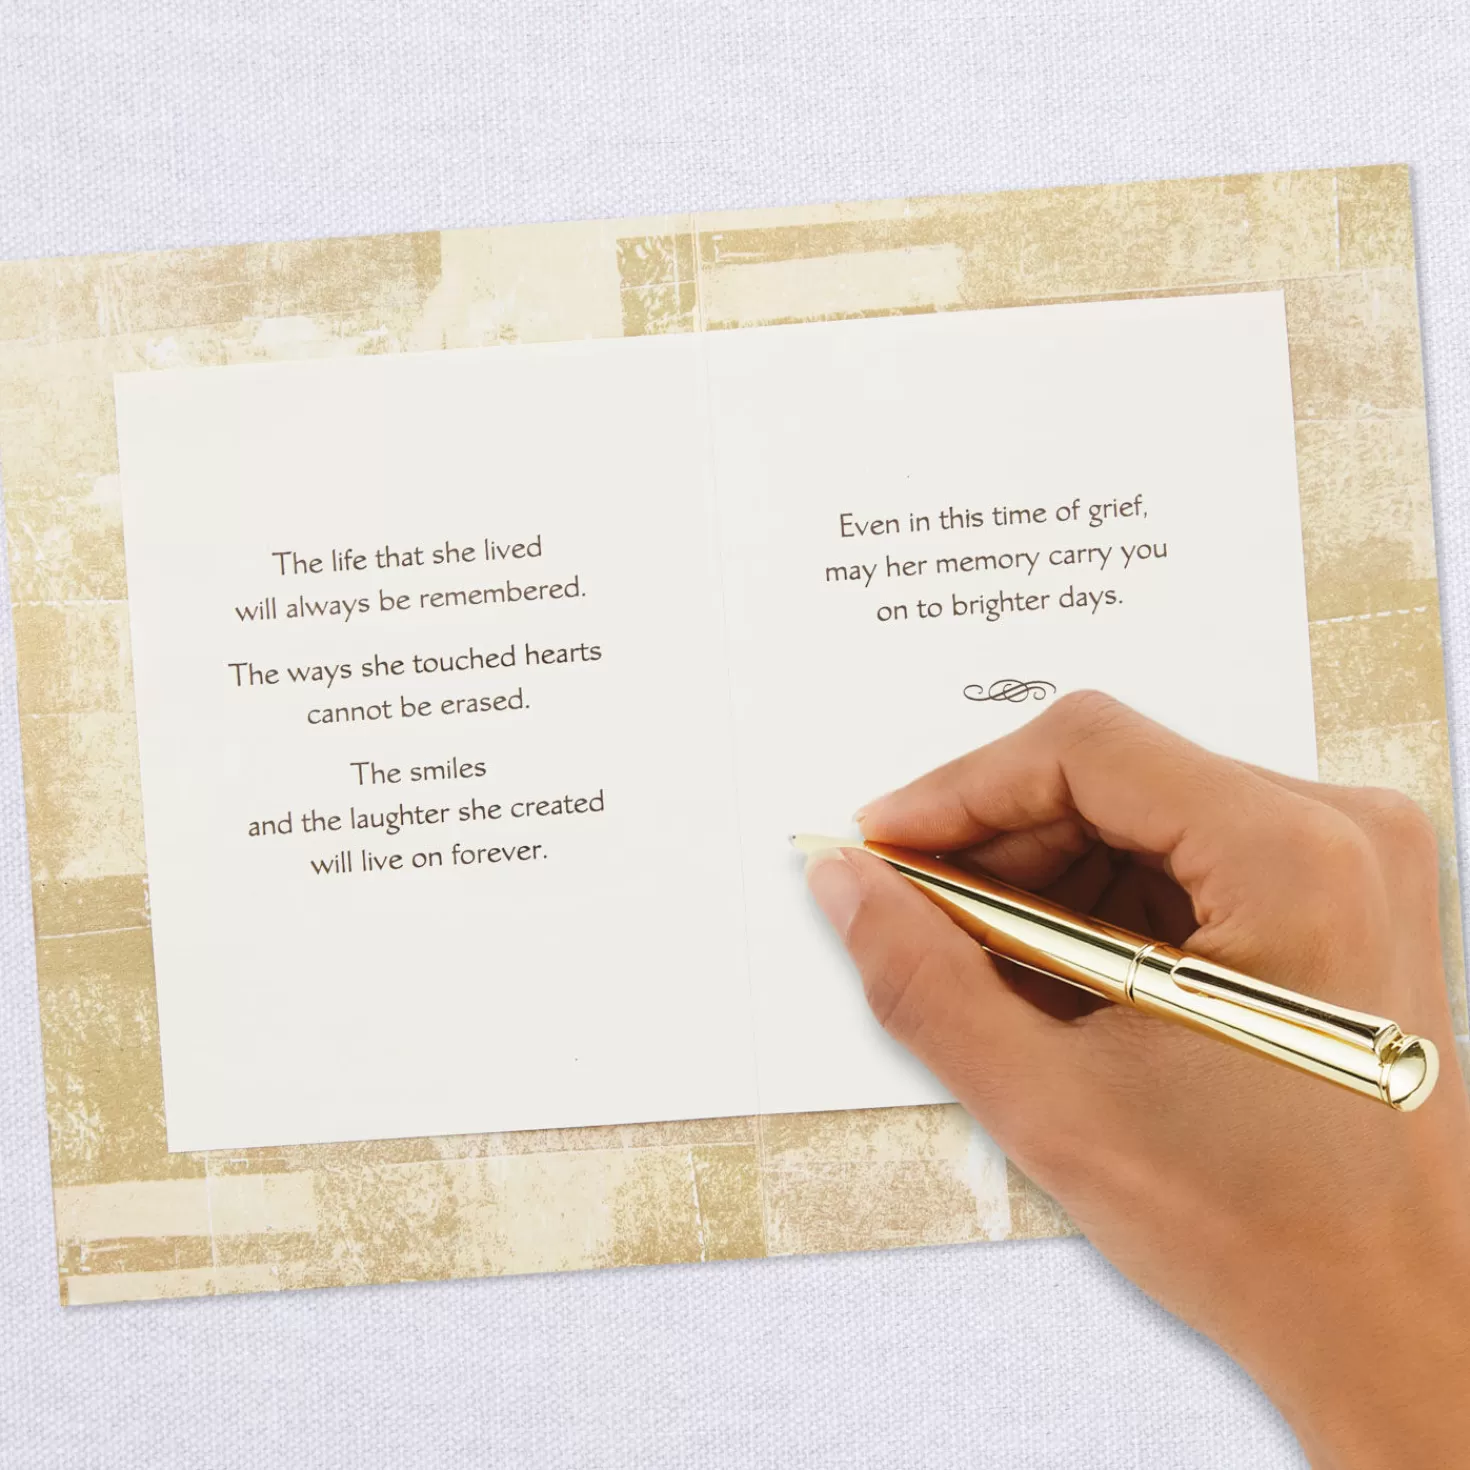 The life that she lived
will always be remembered.
The ways she touched hearts
cannot be erased.
The smiles
and the laughter she created
will live on forever.
Even in this time of grief,
may her memory carry you
on to brighter days.